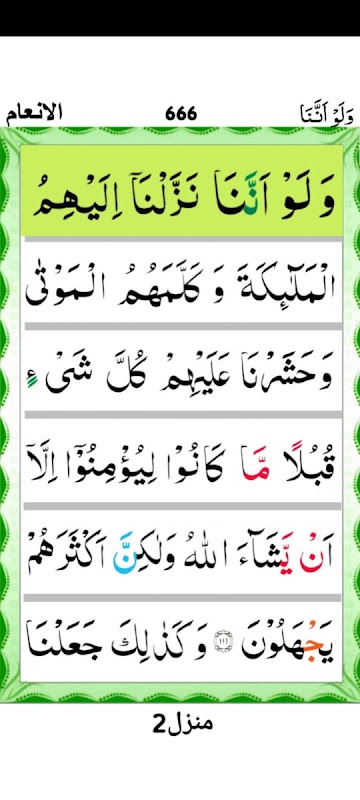 الانعام 666 وَلَوْ اَنَّنَا
وَلَوْ اَنَّنَا نَزَّلْنَاۤ اِلَيْهِمُ
الْمَلٰٓئِكَةَ وَ كَلَّمَهُمُ الْمَوْتٰى
وَحَشَرْنَا عَلَيْهِمْ كُلَّ شَیْءٍ
قُبُلًا مَّا كَانُوْا لِيُؤْمِنُوْۤا اِلَّاۤ
اَنْ يَّشَآءَ اللّٰهُ وَلٰكِنَّ اَكْثَرَهُمْ
يَجْهَلُوْنَ ﴿۱۱۱﴾ وَكَذٰلِكَ جَعَلْنَا
منزل2